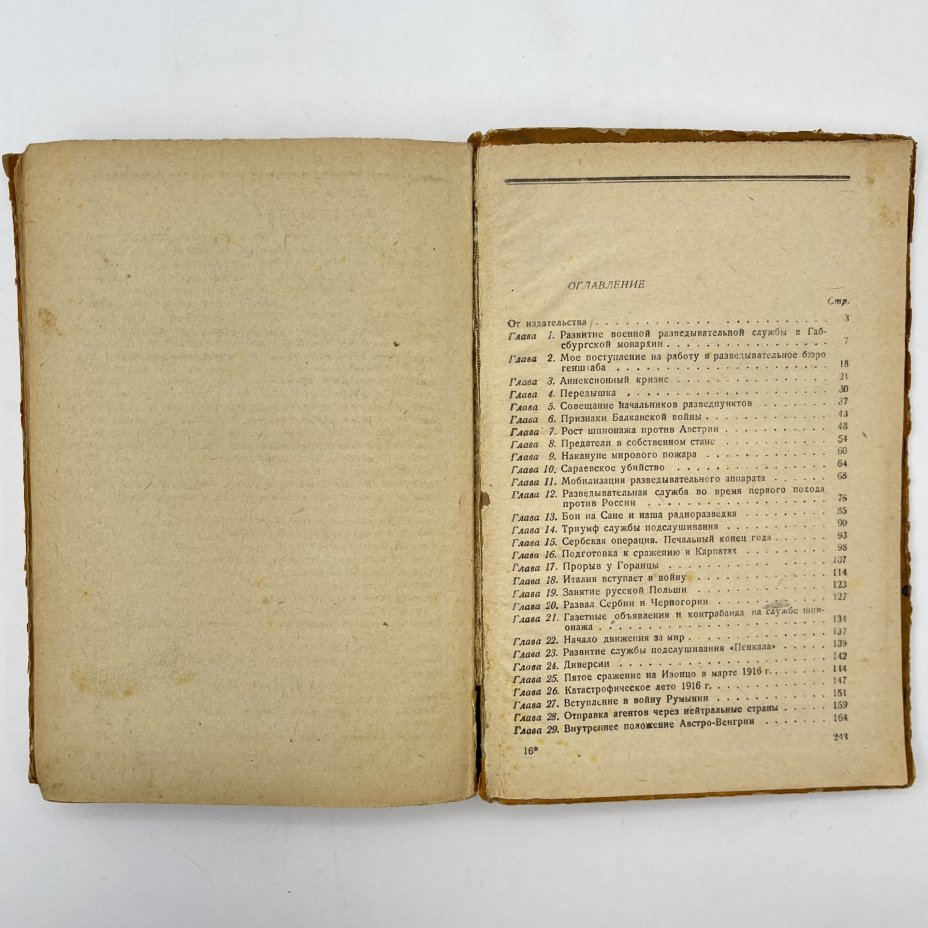 ОГЛАВЛЕНИЕ
Стр.
От издательства . . . . . . . . . . 3
Глава 1. Развитие военной разведывательной службы в Габ-
сбургской монархии . . . . . . . . . . 7
Глава 2. Мое поступление на работу в разведывательное бюро
генштаба . . . . . . . . . . 18
Глава 3. Аннексионный кризис . . . . . . . . . . 21
Глава 4. Передышка . . . . . . . . . . 30
Глава 5. Совещание начальников разведпунктов . . . . . . . . 37
Глава 6. Признаки Балканской войны . . . . . . . . . . 43
Глава 7. Рост шпионажа против Австрии . . . . . . . . . . 48
Глава 8. Предатели в собственном стане . . . . . . . . . . 54
Глава 9. Накануне мирового пожара . . . . . . . . . . 60
Глава 10. Сараевское убийство . . . . . . . . . . 64
Глава 11. Мобилизация разведывательного аппарата . . . . . . 68
Глава 12. Разведывательная служба во время первого похода
против России . . . . . . . . . . 76
Глава 13. Бои на Сане и наша радиоразведка . . . . . . . . 85
Глава 14. Триумф службы подслушивания . . . . . . . . . . 90
Глава 15. Сербская операция. Печальный конец года . . . . . 93
Глава 16. Подготовка к сражению в Карпатах . . . . . . . . 98
Глава 17. Прорыв у Горлицы . . . . . . . . . . 107
Глава 18. Италия вступает в войну . . . . . . . . . . 114
Глава 19. Занятие русской Польши . . . . . . . . . . 123
Глава 20. Развал Сербии и Черногории . . . . . . . . . . 127
Глава 21. Газетные объявления и контрабанда на службе шпи-
онажа . . . . . . . . . . 134
Глава 22. Начало движения за мир . . . . . . . . . . 137
Глава 23. Развитие службы подслушивания «Пенкала» . . . . . 139
Глава 24. Диверсии . . . . . . . . . . 142
Глава 25. Пятое сражение на Изонцо в марте 1916 г. . . . . . 144
Глава 26. Катастрофическое лето 1916 г. . . . . . . . . . . 147
Глава 27. Вступление в войну Румынии . . . . . . . . . . 151
Глава 28. Отправка агентов через нейтральные страны . . . . . 159
Глава 29. Внутреннее положение Австро-Венгрии . . . . . . . 164
16*
243